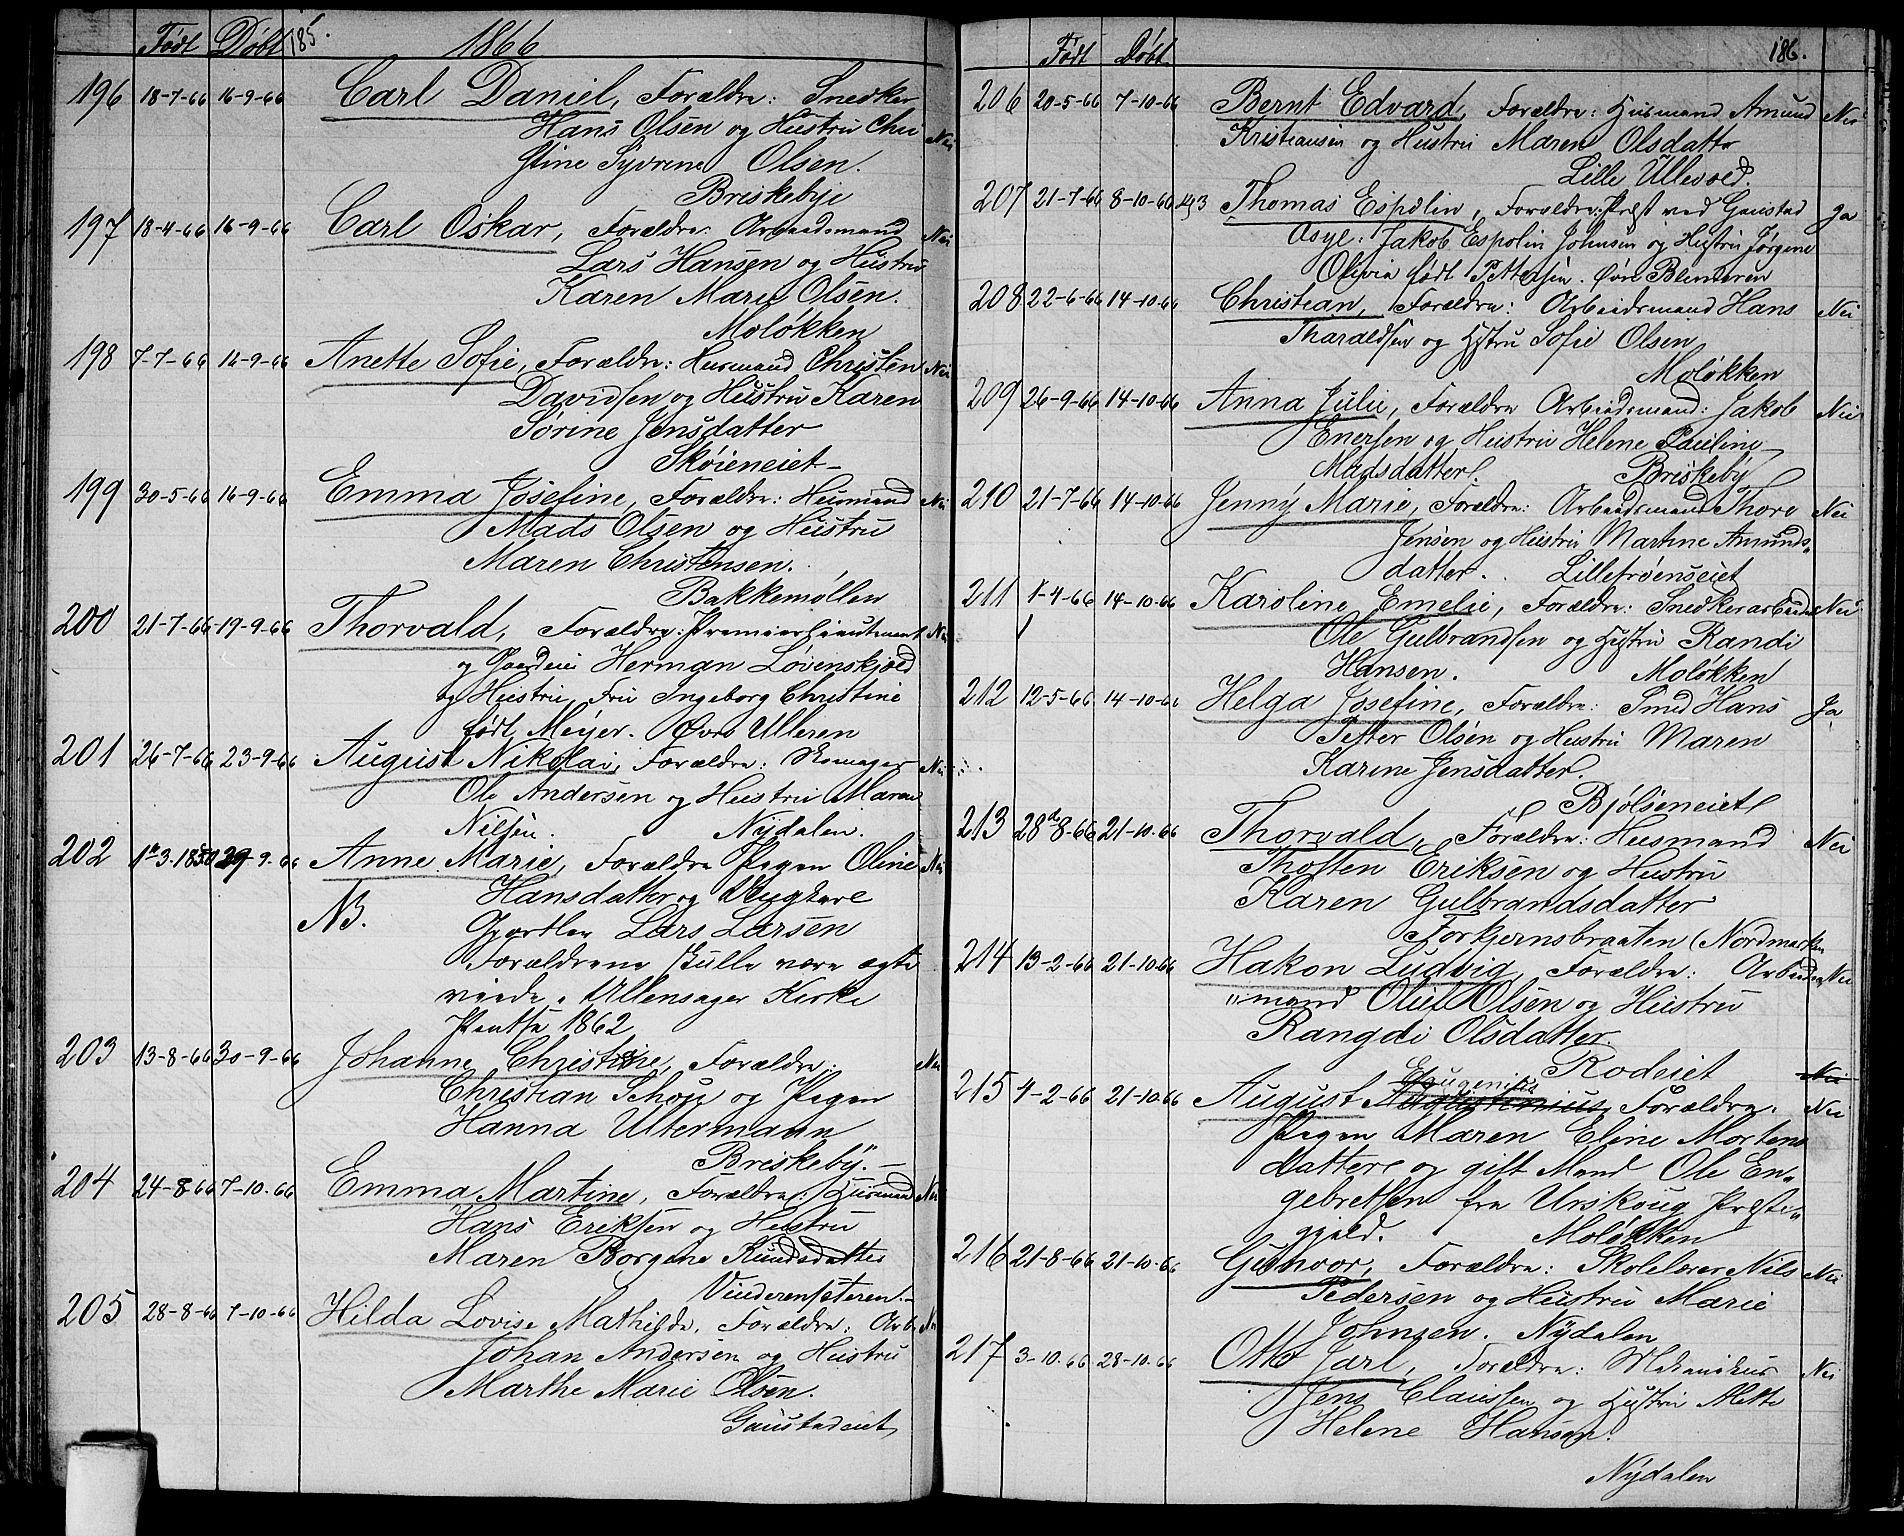 Født Døbt 185. 1866
196 18-7-66 16-9-66 Carl Daniel, Forældre: Snedker
Hans Olsen og Hustru Chri Nei
stine Syvrene Olsen.
Briskebye
197 18-4-66 16-9-66 Carl Oskar, Forældre: Arbeidsmand Nei
Lars Hansen og Hustru
Karen Marie Olsen.
Moløkken
198 7-7-66 16-9-66 Anette Sofie, Forældre: Husmand Christen Nei
Davidsen og Hustru Karen
Sørine Jensdatter
Skøieneiet
199 30-5-66 16-9-66 Emma Josefine, Forældre: Husmand Nei
Mads Olsen og Hustru
Maren Christensen.
Bakkemøllen
200 21-7-66 19-9-66 Thorvald, Forældre: Premierlieutenant Nei
og Gaardeier Herman Løvenskjold
og Hustru, Fru Ingeborg Christine
født Meyer. Øvre Ulleren
201 26-7-66 23-9-66 August Nikolai, Forældre: Skomager Nei
Ole Andersen og Hustru Maren
Nilsen. Nydalen.
202 1-3-1850 29-9-66 Anne Marie, Forældre Pigen Oline Nei
Hansdatter og Ungkarl
NB. Gjørtler Lars Larsen
Forældrene skulle være egte
viede i Ullensager Kirke
Pentse 1862
203 13-8-66 30-9-66 Johanne Christine, Forældre: Nei
Christian Schou og Pigen
Hanna Ultermann
Briskeby.
204 24-8-66 7-10-66 Emma Martine, Forældre: Husmand Nei
Hans Eriksen og Hustru
Maren Borgene Knudsdatter
Vinderensæteren.
205 28-8-66 7-10-66 Hilda Lovise Mathilde, Forældre: Arb. Nei
Johan Andersen og Hustru
Marthe Marie Olsen.
Gaustadeiet
Født Døbt 186.
206 20-5-66 7-10-66 Bernt Edvard, Forældre: Husmand Amund Nei
Kristiansen og Hustru Maren Olsdatter
Lille Ullevold
207 21-7-66 8-10-66 Thomas Espolin, Forældre: Præst ved Gaustad Ja
Asyl: Jakob Espolin Johnsen og Hustru Jørgene
Olivia født Pettersen. Øvre Blinderen
208 22-6-66 14-10-66 Christian, Forældre: Arbeidsmand Hans Nei
Tharaldsen og Hstru Sofie Olsen
Moløkken
209 26-9-66 14-10-66 Anna Julie, Forældre Arbeidsmand: Jakob Nei
Enersen og Hustru Helene Pauline
Madsdatter. Briskeby
210 21-7-66 14-10-66 Jenny Marie, Forældre: Arbeidsmand Thore Nei
Jensen og Hustru Martine Amunds-
datter. Lillefrøenseiet
211 1-4-66 14-10-66 Karoline Emelie, Forældre: Snedkerarbeider Nei
Ole Gulbrandsen og Hustru Randi
Hansen. Moløkken
212 12-5-66 14-10-66 Helga Josefine, Forældre: Smed Hans Ja
Petter Olsen og Hustru Maren
Karine Jensdatter.
Bjølseneiet
213 28-8-66 21-10-66 Thorvald, Forældre: Husmand Nei
Thosten Eriksen og Hustru
Karen Gulbrandsdatter
Torkjernsbraaten (Nordmarken
214 13-2-66 21-10-66 Hakon Ludvig, Forældre: Arbeids Nei
"mand Oluf Olsen og Hustru
Rangdi Olsdatter.
Rodeiet Nei
Eugenius
215 4-2-66 21-10-66 August Augustinius, Forældre: Nei
Pigen Maren Eline Mortens
datter og gift Mand Ole En-
gebretsen fra Urskoug Præste-
gjeld. Moløkken
216 21-8-66 21-10-66 Gunvor, Forældre: Skolelærer Nils Nei
Pedersen og Hustru Marie
Johnsen. Nydalen
217 3-10-66 28-10-66 Otto Jarl, Forældre: Mekanikus Nei
Jens Claussen og Hustru Mette
Helene Hansen.
Nydalen